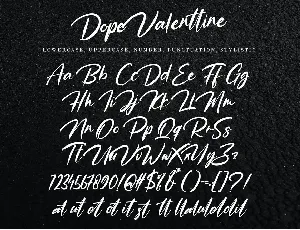 Dope Valenttine
LOWERCASE, UPPERCASE, NUMBER, PUNCTUATION, STYLISTIC
Aa Bb Cc Dd Ee Ff Gg
Hh Ii Jj Kk Ll Mm
Nn Oo Pp Qq Rr Ss
Tt Uu Vv Ww Xx Yy Zz
1234567890!@#$%&()-={}?!
at ut et ot it st tt